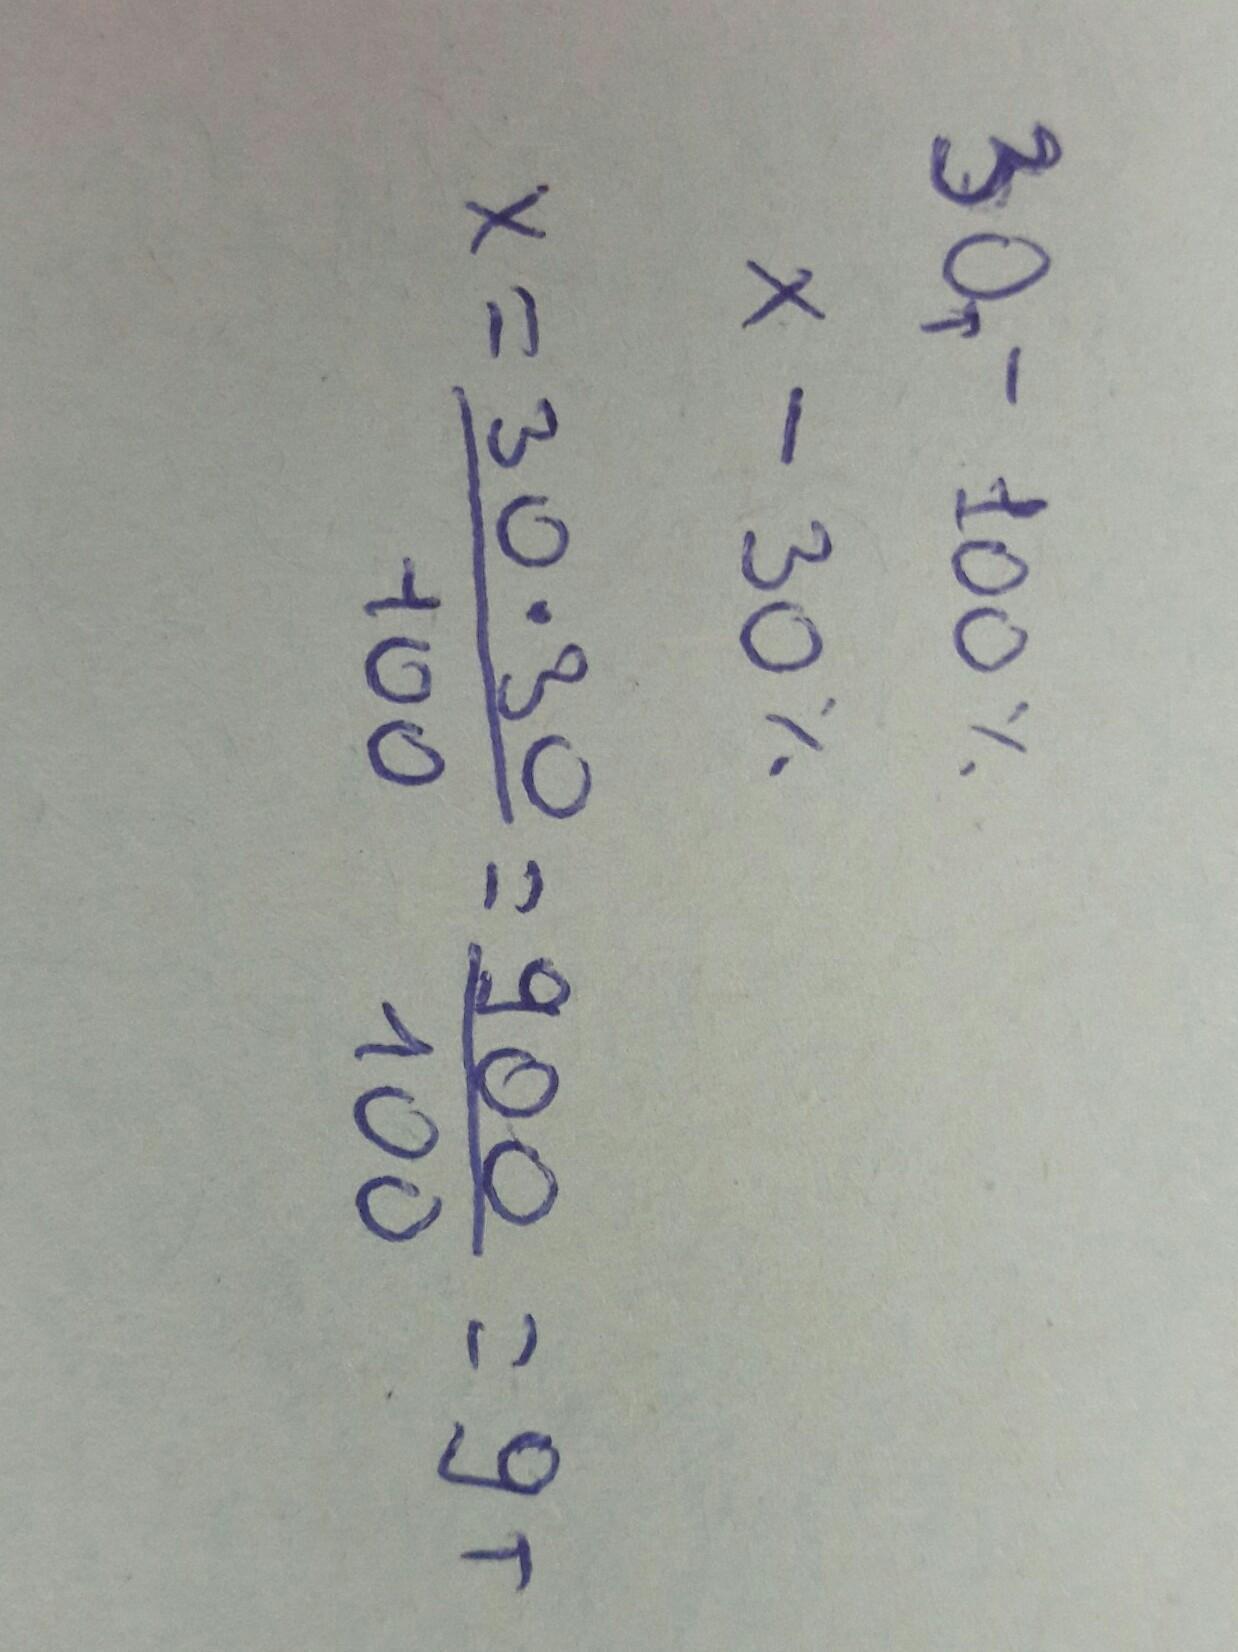 30т - 100%
x - 30%
x = 30·30/100 = 900/100 = 9т